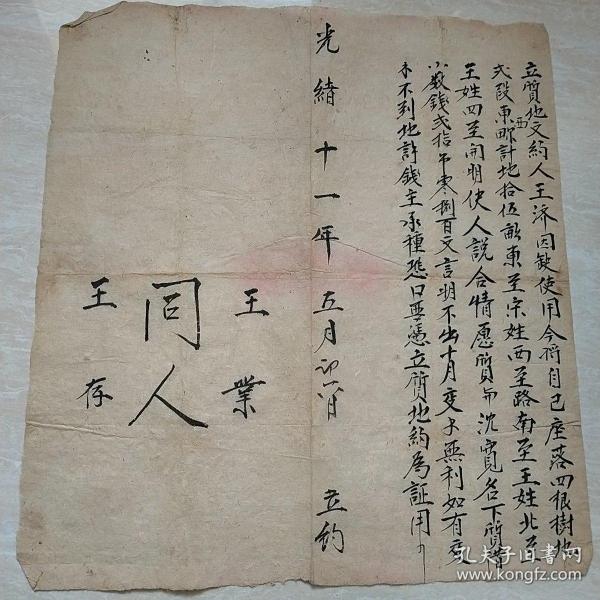 立質地文約人王济因缺使用今将自己座落四根樹地
弍段東西畛計地拾伍畝東至宋姓西至路南至王姓北至
王姓四至開明使人説合情愿質与沈寬名下質借
小数錢弍拾吊零捌百文言明不出十月变卜無利如有变
卜不到地許錢主承種恐口無憑立質地約為証用
光緒十一年五月初八日 立約
王業
同人
王存
孔夫子旧书网
www.kongfz.com